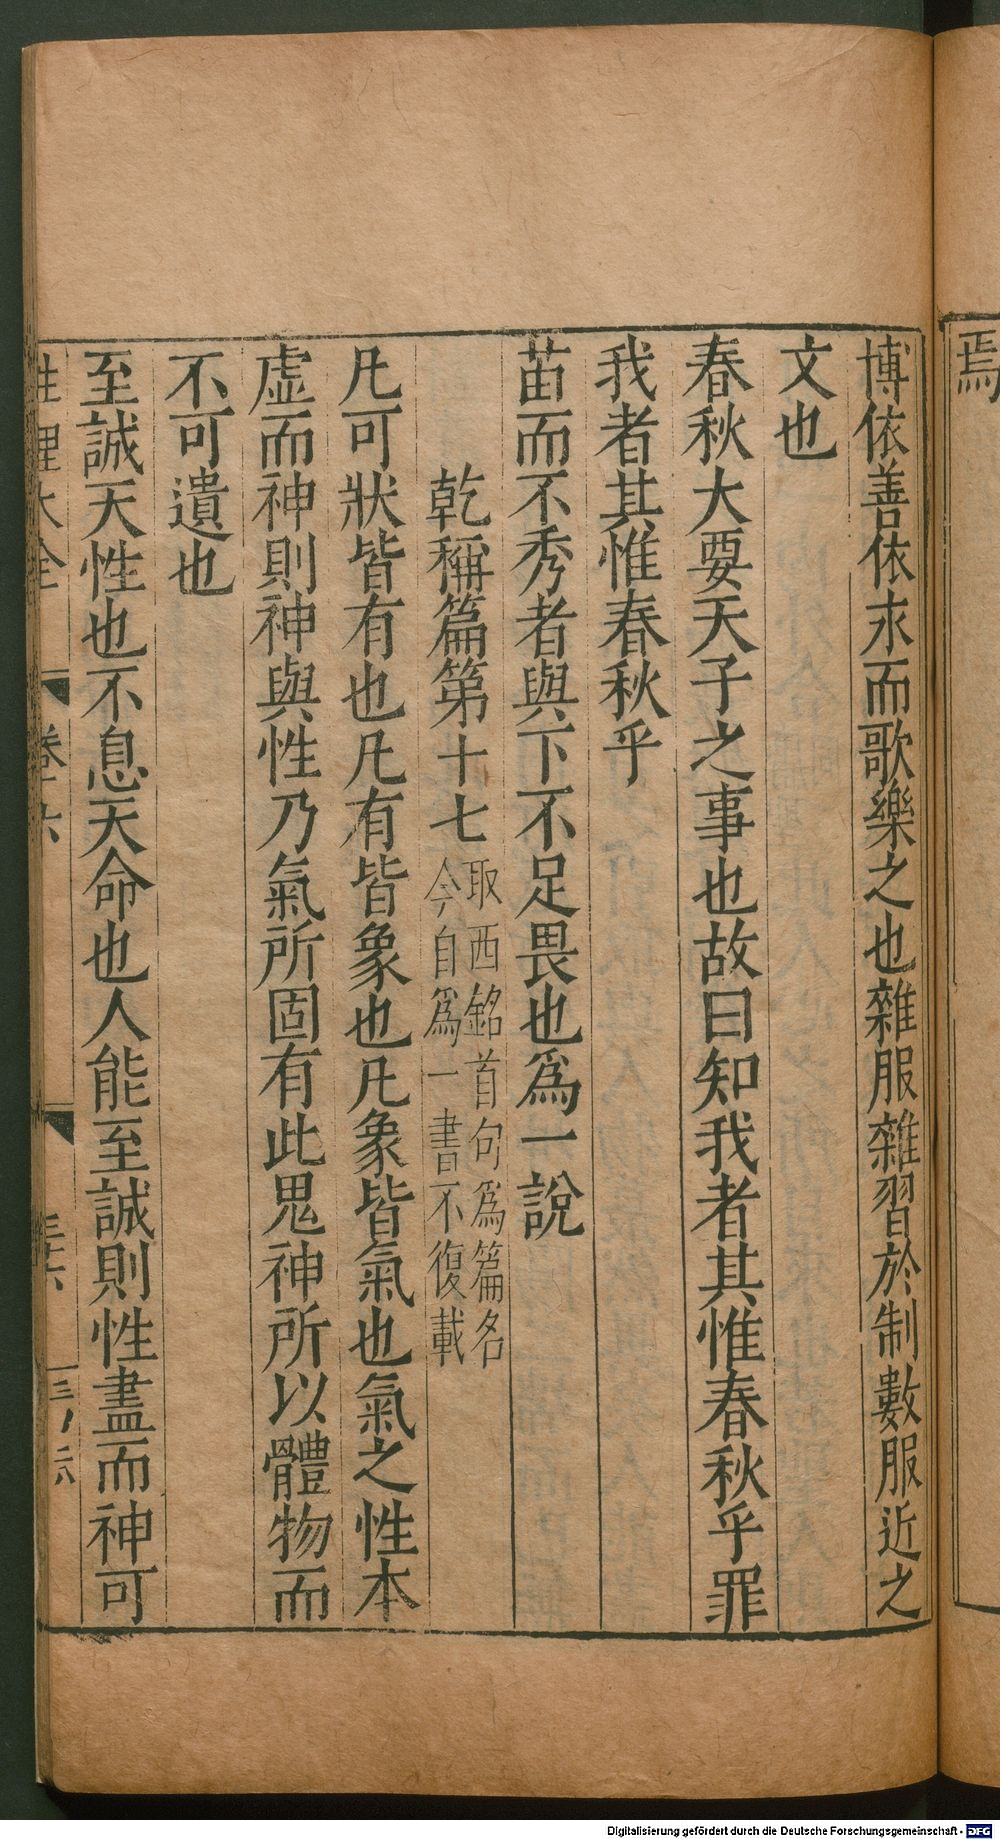 焉
博依善依求而歌樂之也雜服雜習於制數服近之
文也
春秋大要天子之事也故曰知我者其惟春秋乎罪
我者其惟春秋乎
苗而不秀者與下不足畏也爲一說
乾稱篇第十七
取西銘首句爲篇名
今自爲一書不復載
凡可狀皆有也凡有皆象也凡象皆氣也氣之性本
虛而神則神與性乃氣所固有此鬼神所以體物而
不可遺也
至誠天性也不息天命也人能至誠則性盡而神可
性理大全
卷六
Digitalisierung gefördert durch die Deutsche Forschungsgemeinschaft - DFG